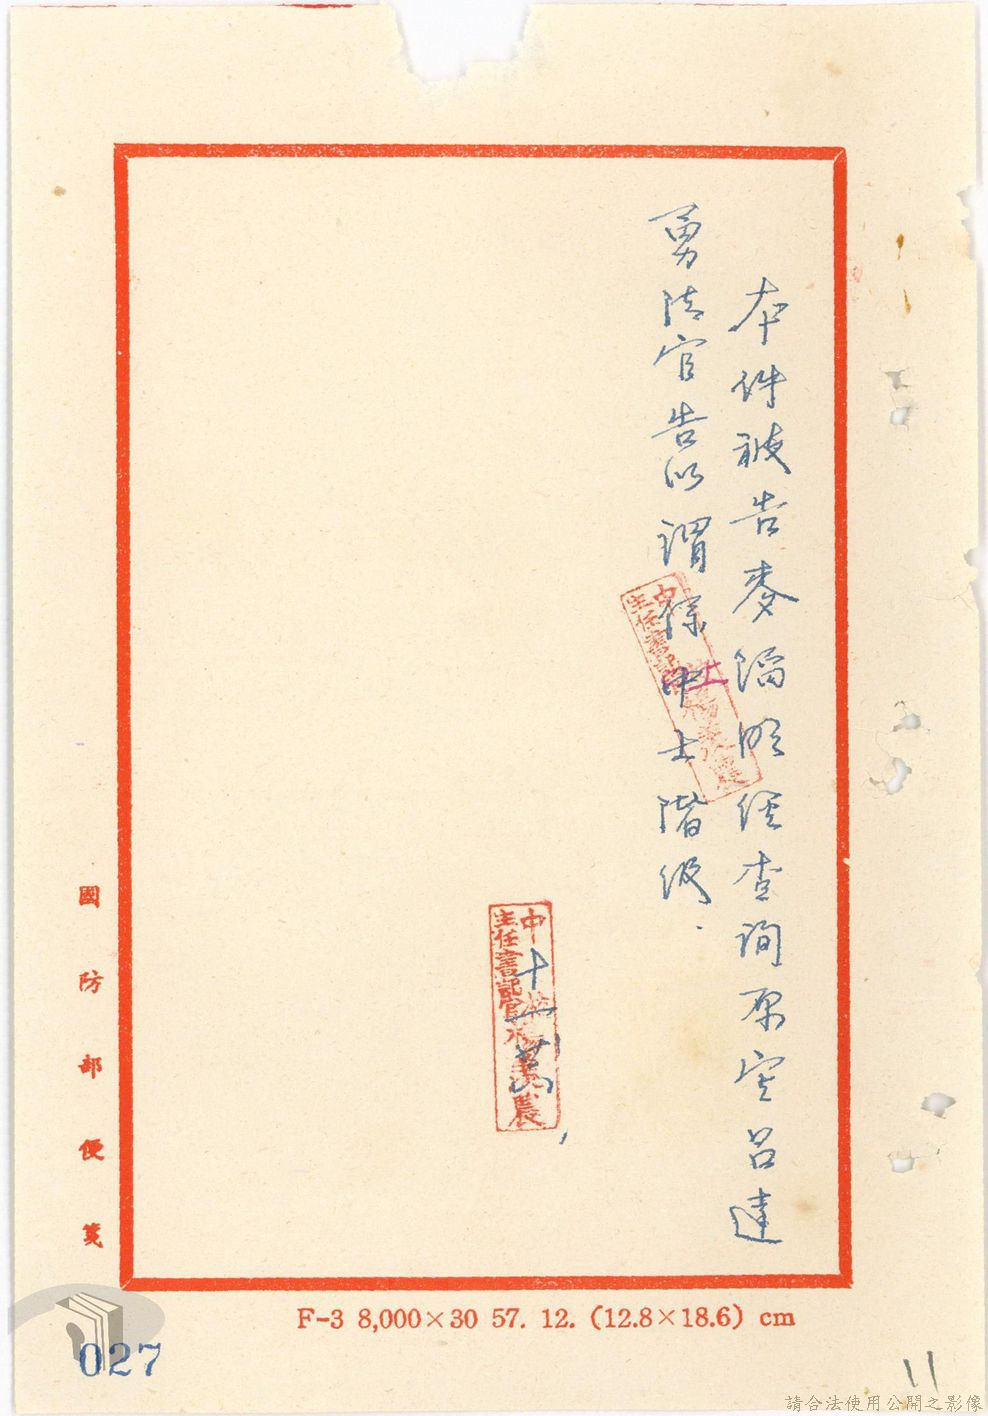 本件被告麥陷明經查詢原審呂達
勇法官告以謂係中上士階級.
中校
主任書記官楊美農
中校
主任書記官楊美農
十一
國防部便箋
F-3 8,000×30 57. 12. (12.8×18.6) cm
027
11
請合法使用公開之影像